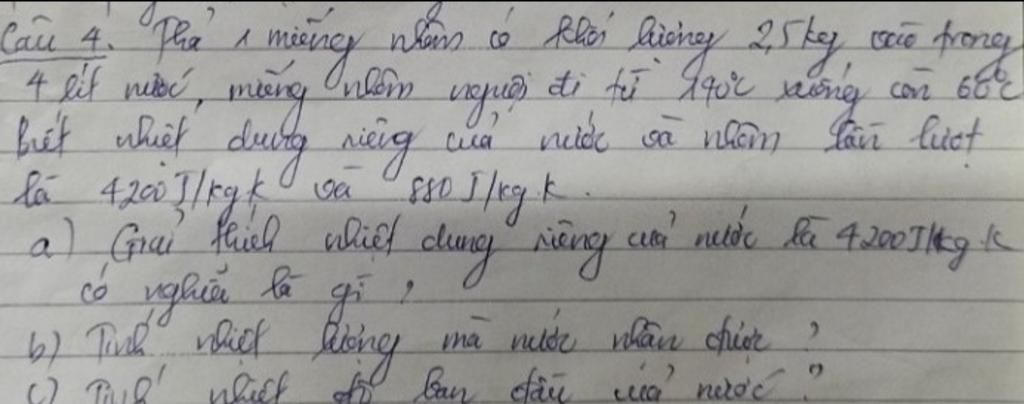 Câu 4. Thả 1 miếng nhôm có khối lượng 2,5kg vào trong
4 lít nước, miếng nhôm nguội đi từ 140°C xuống còn 60°C
Biết nhiệt dung riêng của nước và nhôm lần lượt
là 4200J/kg k và 880J/kg.k.
a) Giải thích nhiệt dung riêng của nước là 4200J/kg.k
có nghĩa là gì ?
b) Tính nhiệt lượng mà nước nhận được ?
c) Tính nhiệt độ ban đầu của nước ?